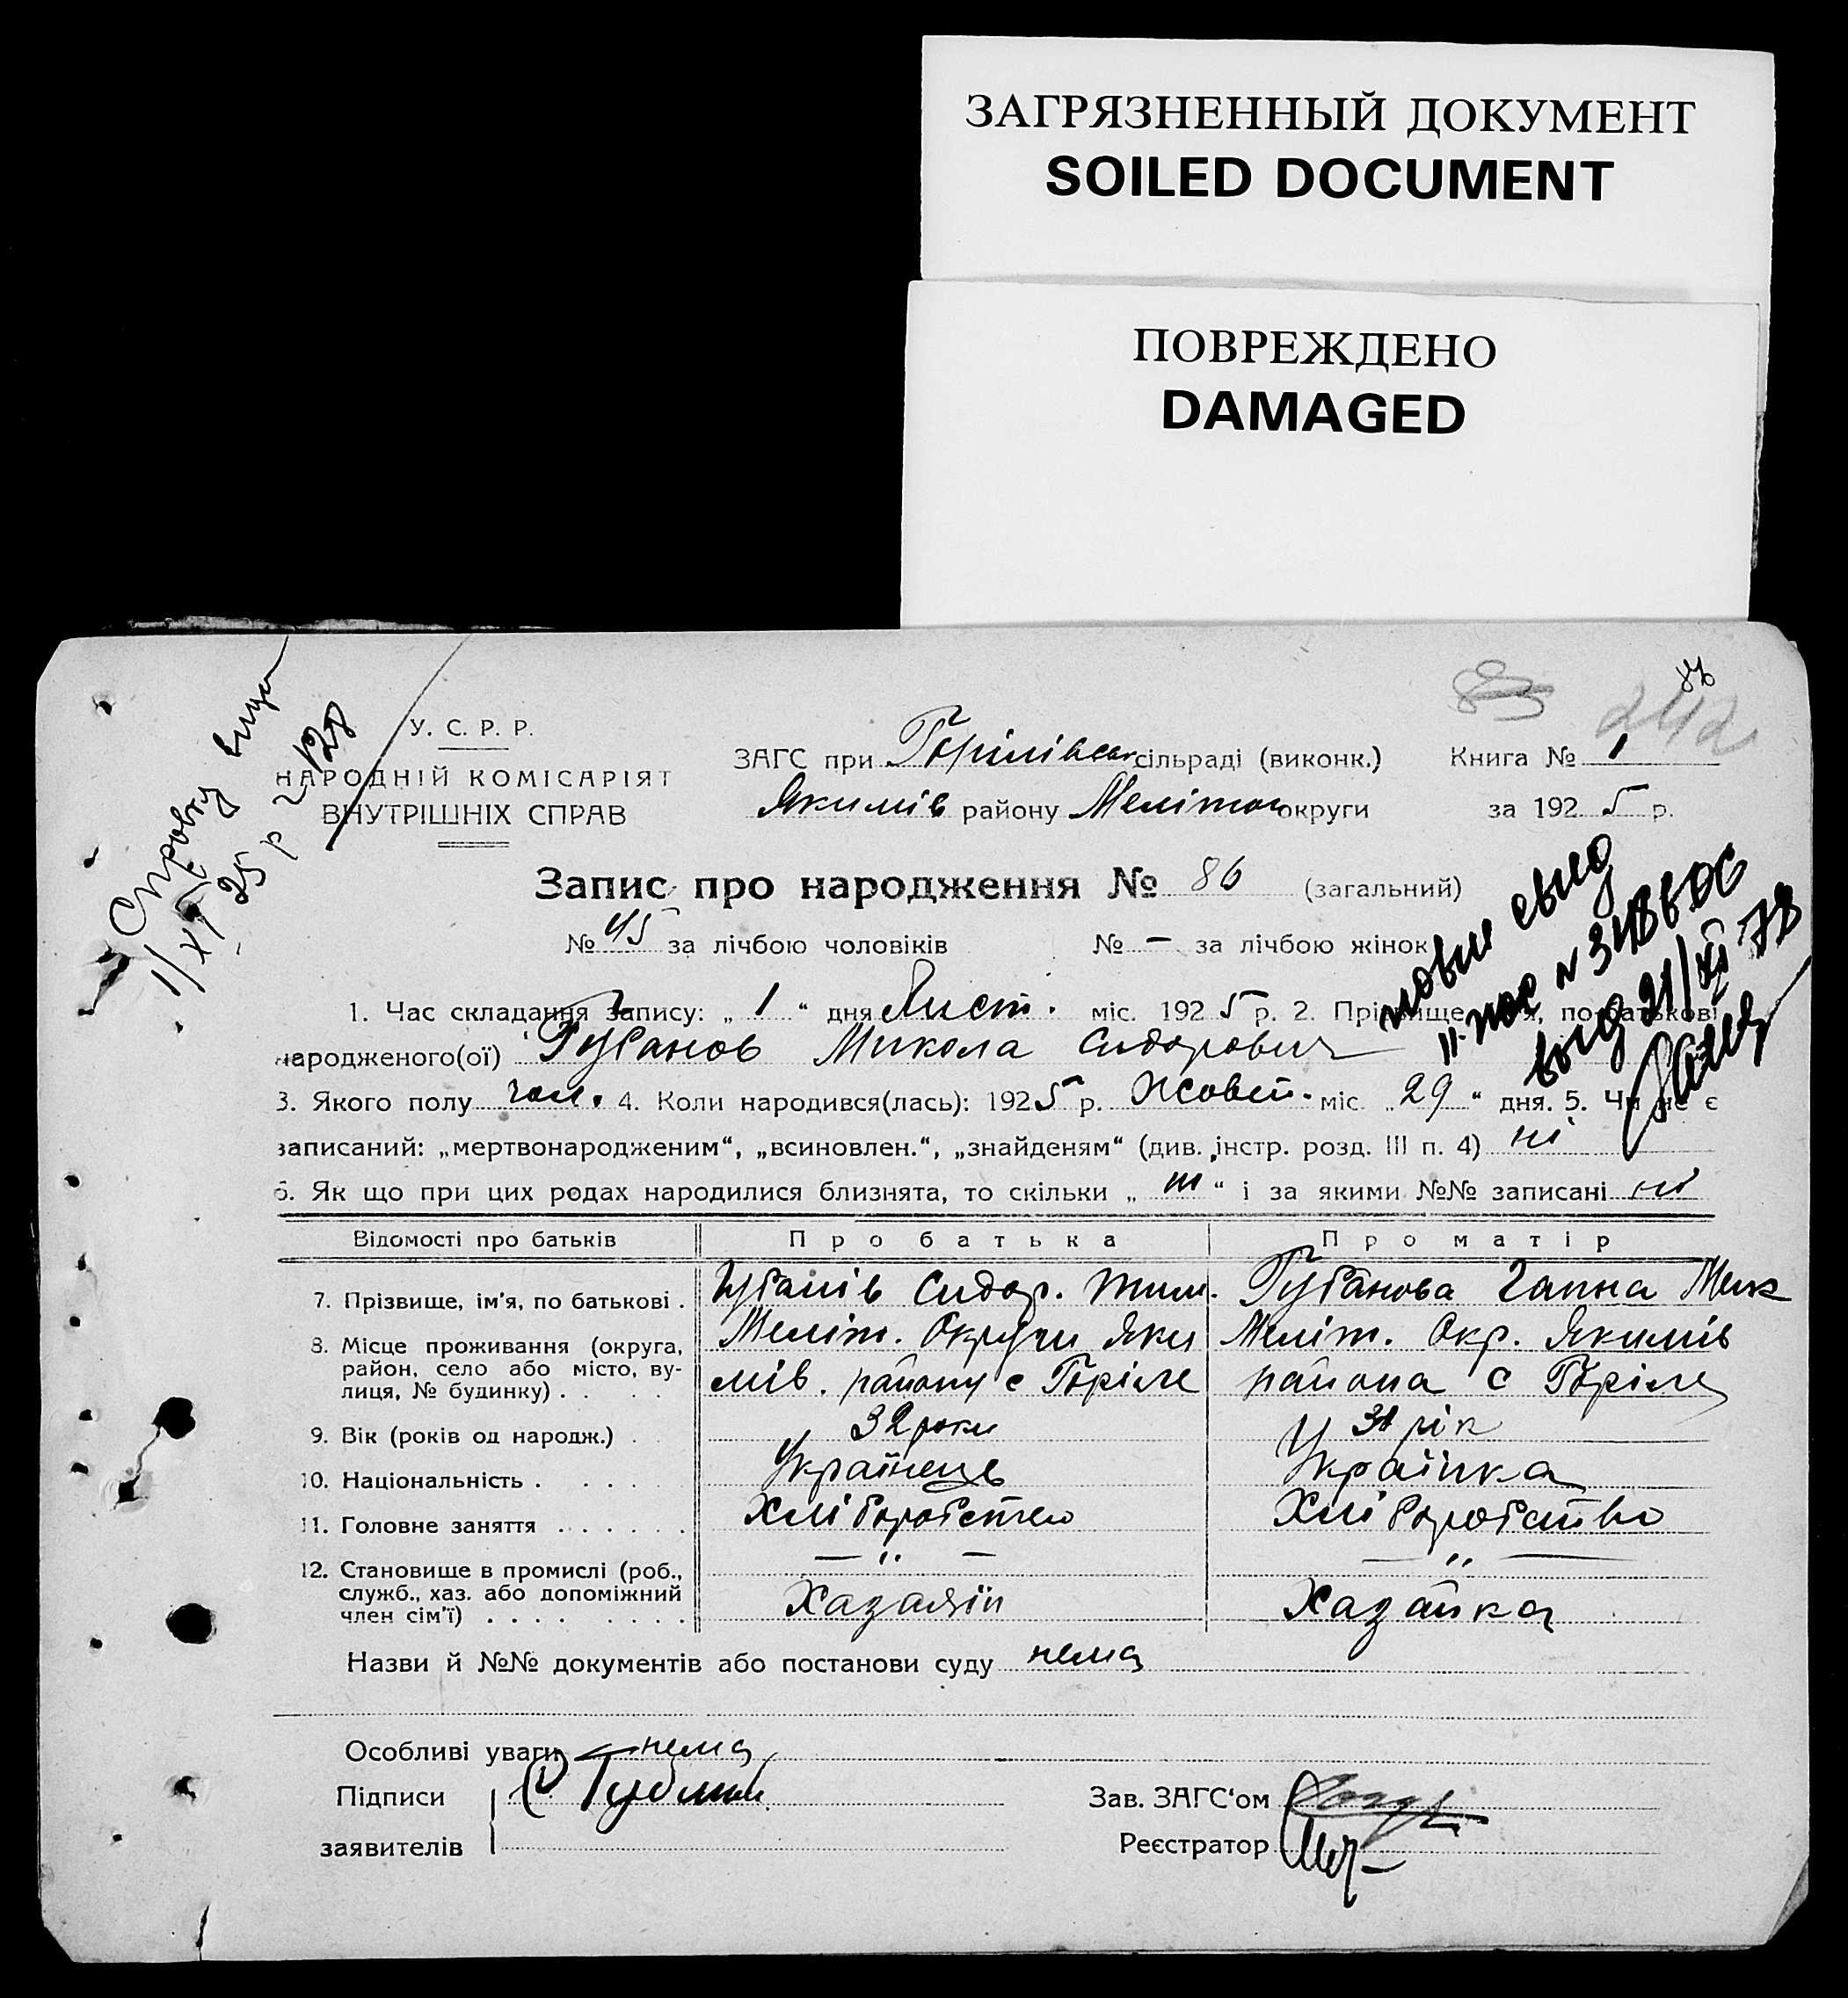 ЗАГРЯЗНЕННЫЙ ДОКУМЕНТ
SOILED DOCUMENT
ПОВРЕЖДЕНО
DAMAGED
86
242
Справку
1/XI 25 р № 128
У. С. Р. Р.
НАРОДНІЙ КОМІСАРІЯТ
ВНУТРІШНІХ СПРАВ
ЗАГС при Горілівськ сільраді (виконк.) Книга № 1
Якимів району Мелітоп округи за 192 5 р.
Запис про народження № 86 (загальний)
№ 45 за лічбою чоловіків № — за лічбою жінок
1. Час складання запису: „ 1 “ дня Лист. міс. 192 5 р. 2. Прізвище, ім'я, по батькові
народженого(ої) Губанов Микола Сидорович
3. Якого полу чол. 4. Коли народився(лась): 192 5 р. Жовт. міс. „ 29 “ дня. 5. Чи не є
записаний: „мертвонародженим“, „всиновлен.“, „знайденям“ (див. інстр. розд. III п. 4) ні
6. Як що при цих родах народилися близнята, то скільки „ “ і за якими №№ записані ні
Відомості про батьків Про батька Про матір
7. Прізвище, ім'я, по батькові . Губанів Сидор. Тим. Губанова Ганна Мик
8. Місце проживання (округа, район, село або місто, вулиця, № будинку) . . Меліт. Округи Якимів. району с Горіле Меліт. Окр. Якимів района с Горіле
9. Вік (років од народж.) . 32 роки 31 рік
10. Національність . . . . . Українець Українка
11. Головне заняття . . . . . . Хліборобство Хліборобство
12. Становище в промислі (роб., — „ — — „ —
служб., хаз. або допоміжний
член сім'ї) . . . . . . . . Хазаяїн Хазайка
Назви й №№ документів або постанови суду нема
Особливі уваги нема
Підписи С Губанів
заявителів
Зав. ЗАГС‘ом
Реєстратор
повт свид
II ЖС № 348606
выд 21/XI 78